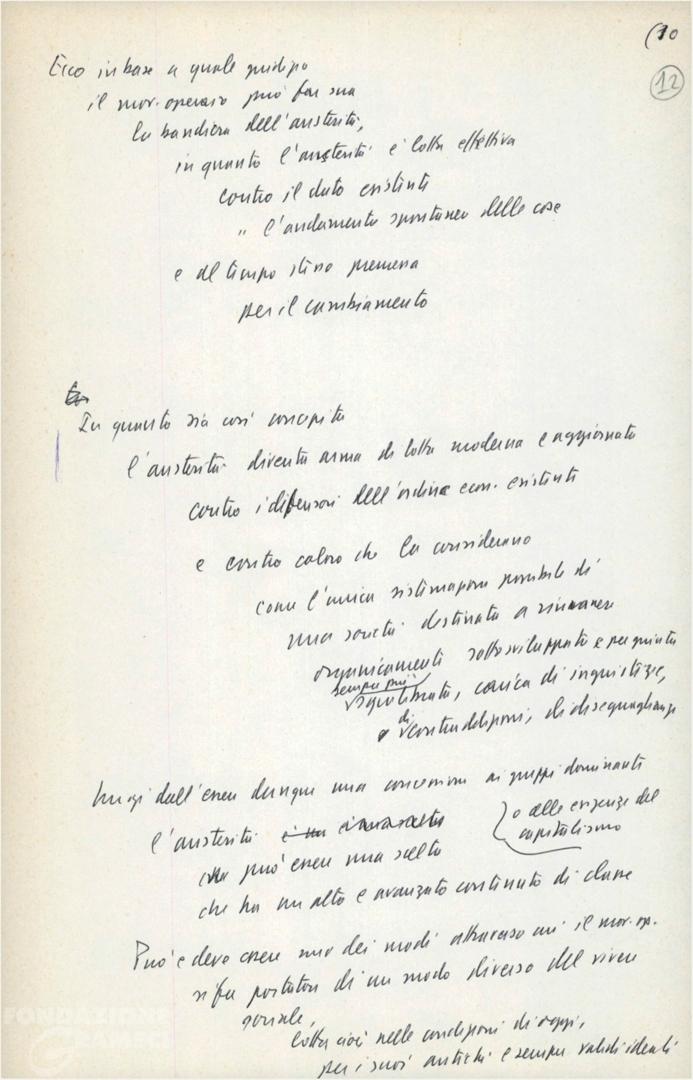 (10
12
Ecco in base a quale giudizio
il mov. operaio può far sua
la bandiera dell'austerità,
in quanto l'austerità è lotta effettiva
contro il dato esistente
" l'andamento spontaneo delle cose
e al tempo stesso premessa
per il cambiamento
In quanto sia così concepita
l'austerità diventa arma di lotta moderna e aggiornata
contro i difensori dell'ordine econ. esistente
e contro coloro che la considerano
come l'unica sistemazione possibile di
una società destinata a rimanere
organicamente sottosviluppata e per giunta
sempre più
squilibrata, carica di ingiustizie,
di contraddizioni, di diseguaglianze
Lungi dall'essere dunque una concessione ai gruppi dominanti
l'austerità o alle esigenze del
capitalismo
può essere una scelta
che ha un alto e avanzato contenuto di classe
Può e deve essere uno dei modi attraverso cui il mov. op.
si fa portatore di un modo diverso del vivere
sociale,
lotta cioè nelle condizioni di oggi,
per i suoi antichi e sempre validi ideali
FONDAZIONE
GRAMSCI